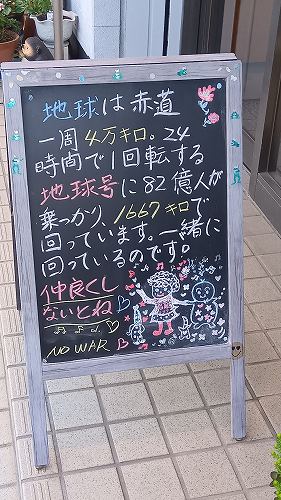 地球は赤道
一周4万キロ。24
時間で1回転する
地球号に82億人が
乗っかり、1667キロで
回っています。一緒に
回っているのです。
仲良くし
ないとね
NO WAR